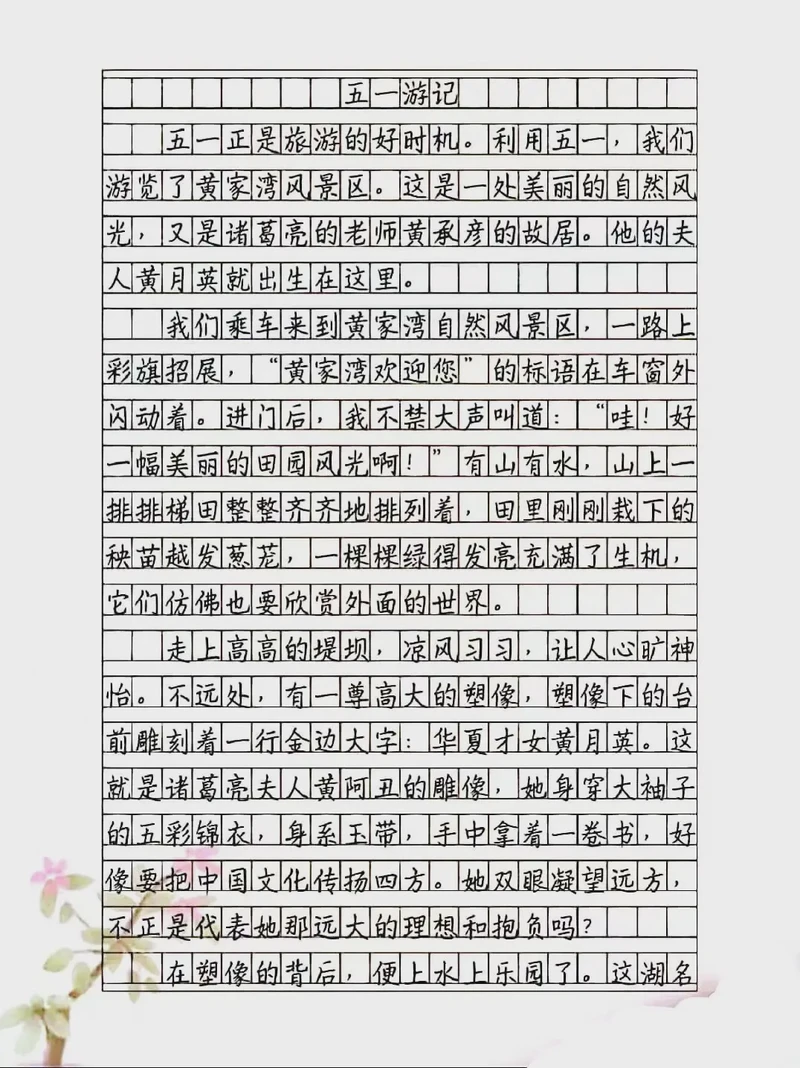 五一游记
五一正是旅游的好时机。利用五一，我们
游览了黄家湾风景区。这是一处美丽的自然风
光，又是诸葛亮的老师黄承彦的故居。他的夫
人黄月英就出生在这里。
我们乘车来到黄家湾自然风景区，一路上
彩旗招展，“黄家湾欢迎您”的标语在车窗外
闪动着。进门后，我不禁大声叫道：“哇！好
一幅美丽的田园风光啊！”有山有水，山上一
排排梯田整整齐齐地排列着，田里刚刚栽下的
秧苗越发葱茏，一棵棵绿得发亮充满了生机，
它们仿佛也要欣赏外面的世界。
走上高高的堤坝，凉风习习，让人心旷神
怡。不远处，有一尊高大的塑像，塑像下的台
前雕刻着一行金边大字：华夏才女黄月英。这
就是诸葛亮夫人黄阿丑的雕像，她身穿大袖子
的五彩锦衣，身系玉带，手中拿着一卷书，好
像要把中国文化传扬四方。她双眼凝望远方，
不正是代表她那远大的理想和抱负吗？
在塑像的背后，便上水上乐园了。这湖名